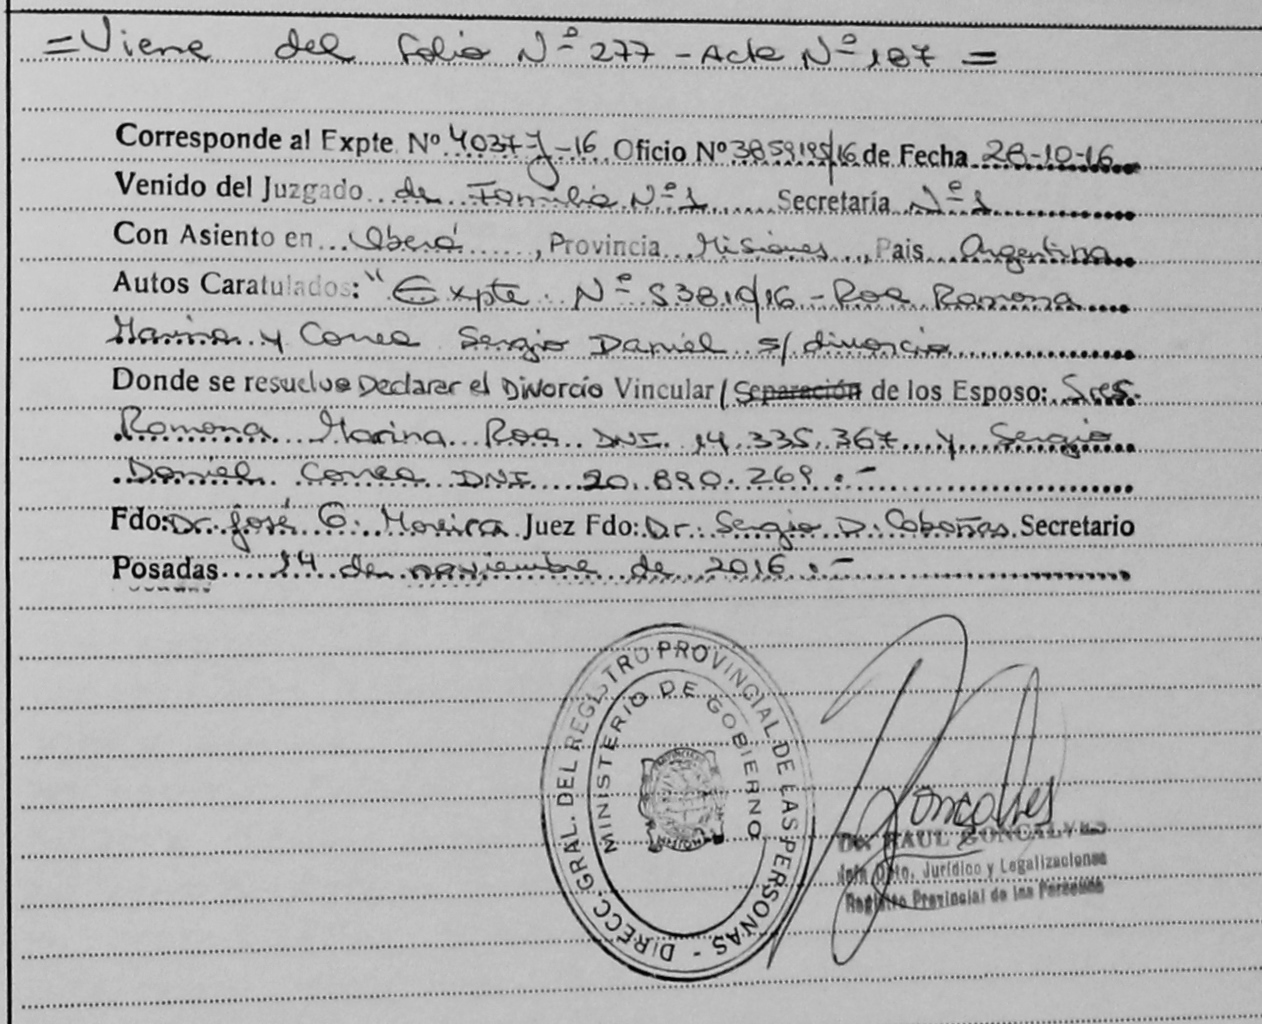 =Viene del folio Nº 277 - Acta Nº 187 =
Corresponde al Expte Nº 4037-J-16 Oficio Nº 3859195/16 de Fecha 28-10-16
Venido del Juzgado de Familia Nº 1 Secretaría Nº 1
Con Asiento en Oberá, Provincia Misiones, Pais Argentina
Autos Caratulados: "Expte. Nº 5381/16 - Roa Ramona
Marina y Correa Sergio Daniel s/ divorcio
Donde se resuelve Declarar el Divorcio Vincular / Separación de los Esposo: Sres.
Ramona Marina Roa DNI 14.335.367 y Sergio
Daniel Correa DNI 20.890.269.-
Fdo: Dr. José G. Moreira Juez Fdo: Dr. Sergio D. Cabañas Secretario
Posadas 14 de noviembre de 2016.-
DIRECC. GRAL. DEL REGISTRO PROVINCIAL DE LAS PERSONAS -
MINISTERIO DE GOBIERNO
Goncalves
Dr. RAUL GONCALVES
Jefe Dpto. Jurídico y Legalizaciones
Registro Provincial de las Personas